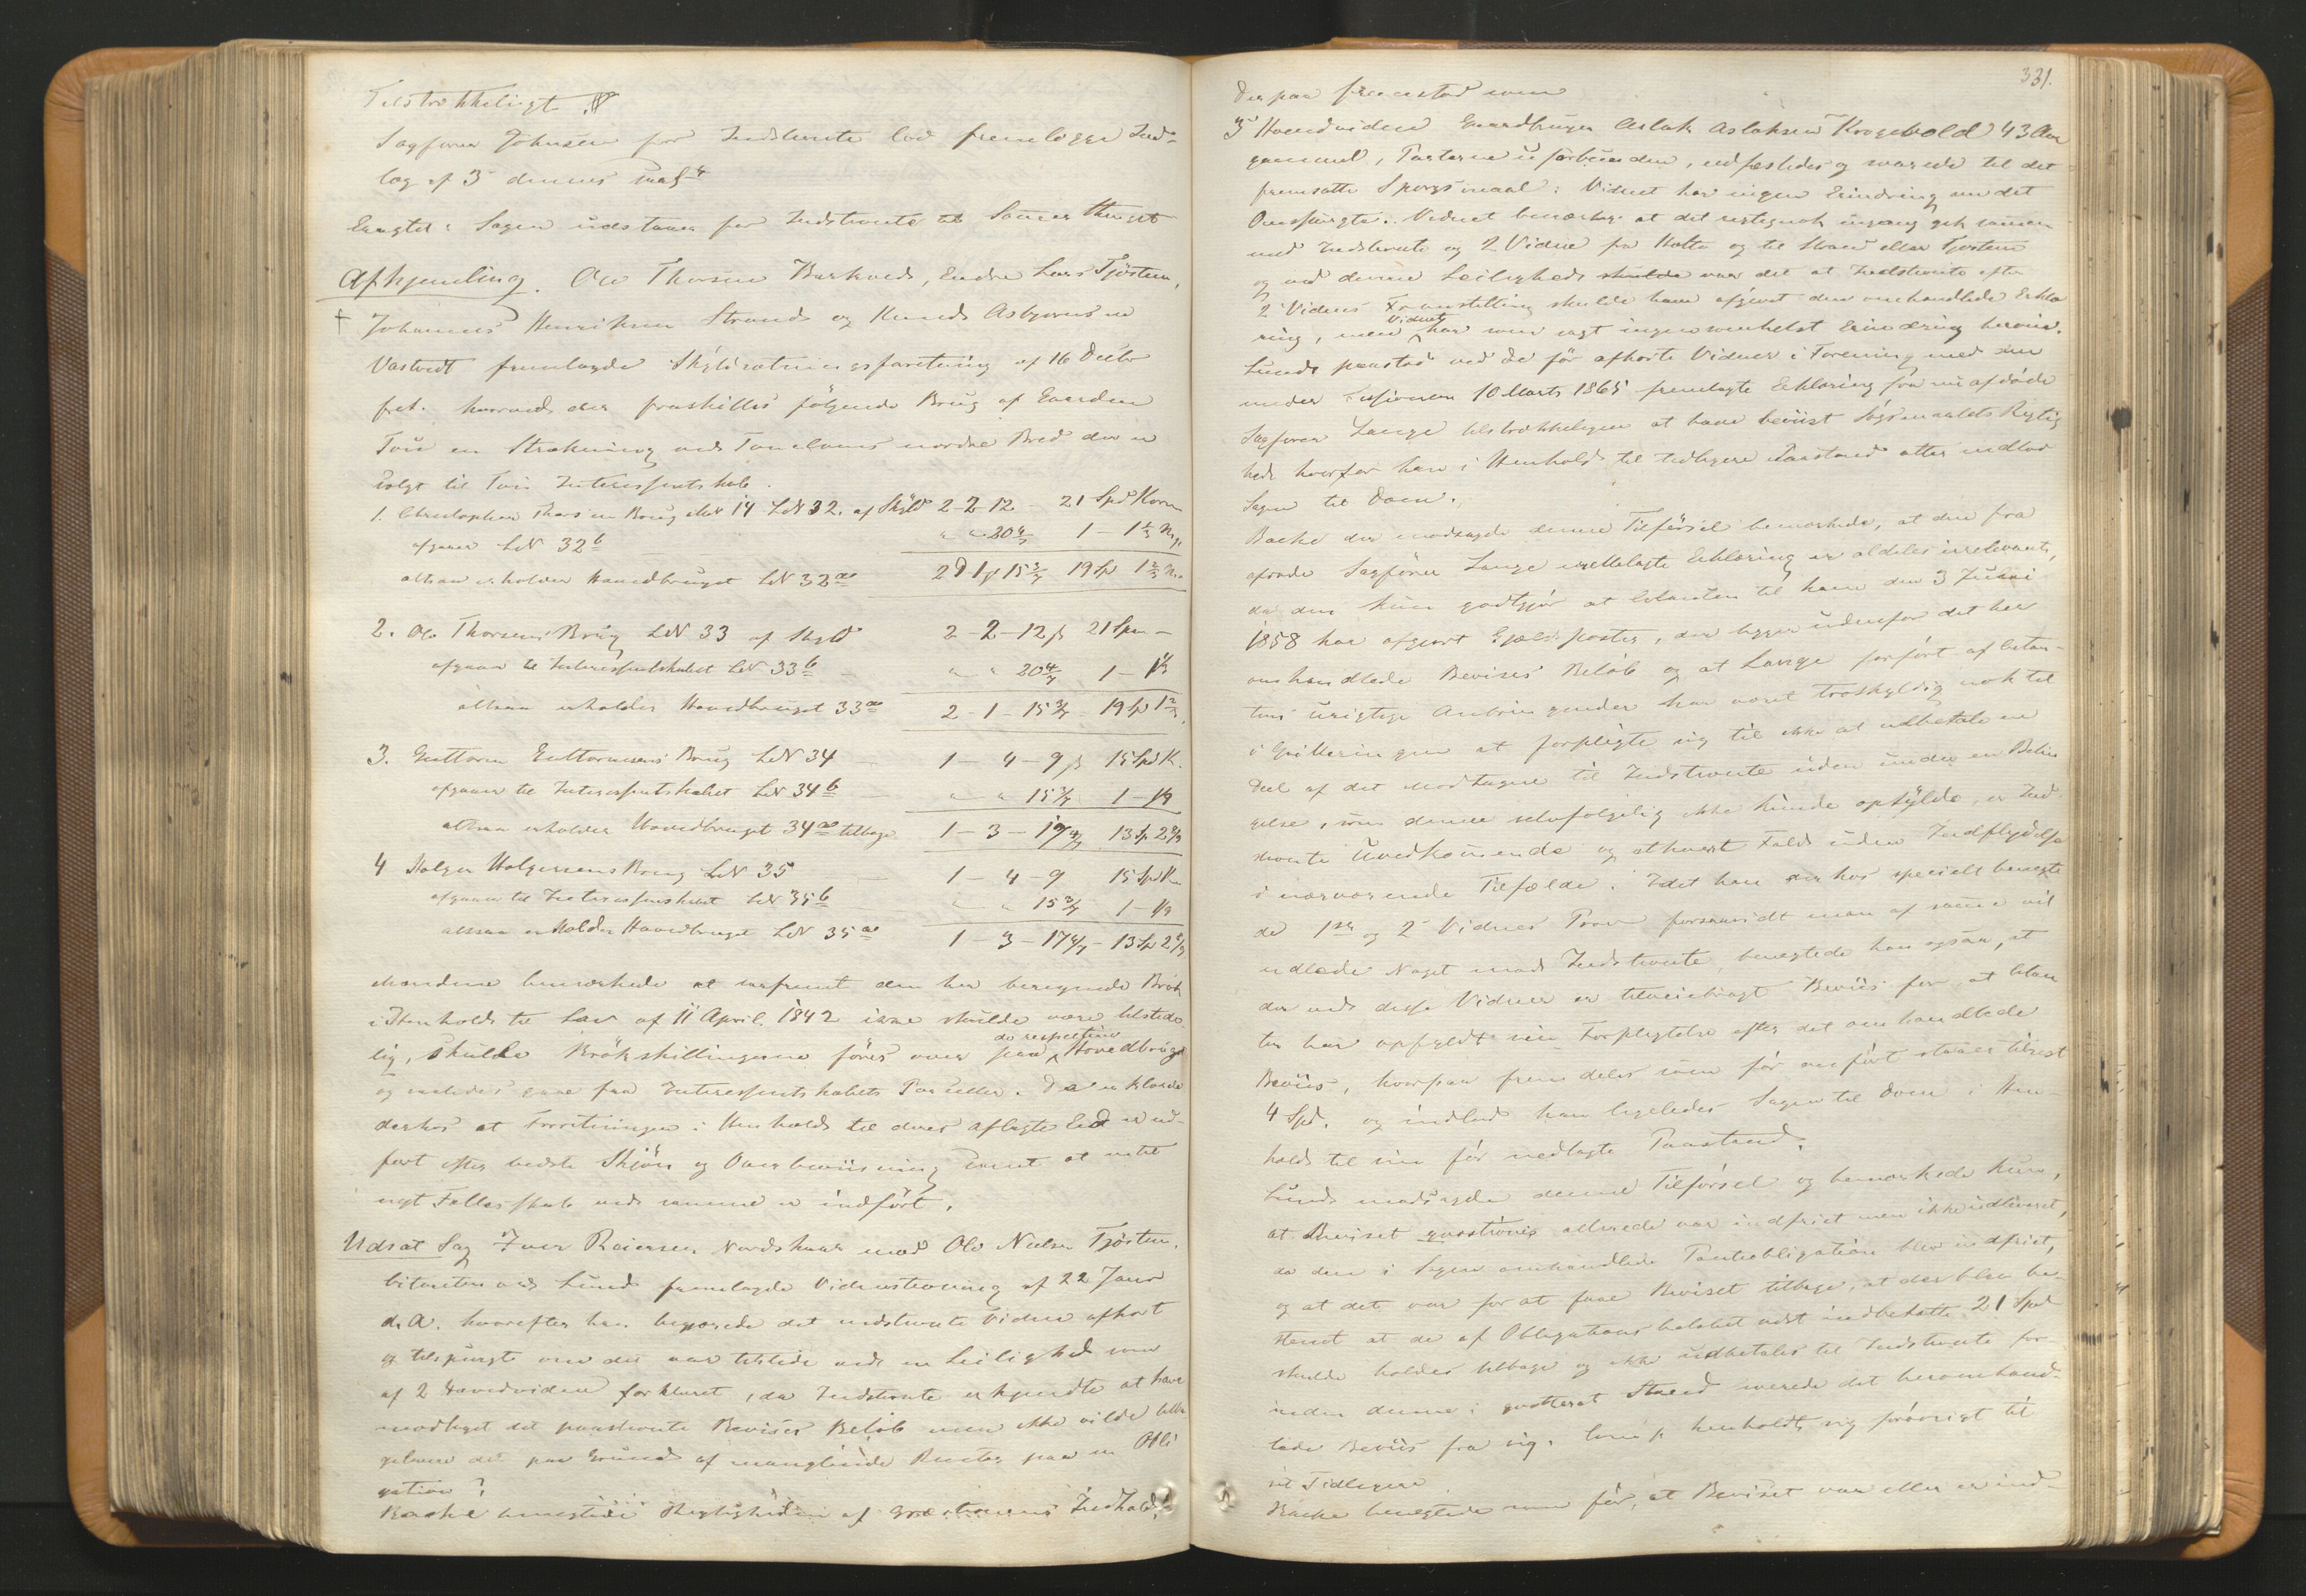 Tilstrækkeligt.
Sagfører Johnsen for Indstevnte lod fremlægge Ind-
læg af 3 dennes
Eragtet: Sagen udstaaer for Indstevnte til Sauer Thinget
Afhjemling. Ole Thorsen Barkved, Endre Larsen Tjøstem,
† Johannes Henriksen Strand og Knud Asbjørnsen
Vastvedt fremlagde Skyldsætningsforretning af 16 Decbr
hvorved der fraskilles følgende Brug af Gaarden
Tou en Strækning ved Touelvens nordre Bred der er
solgt til Tou Interessentskab.
1. Christopher Thorsens Brug MN 14 LN 32. af Skyld 2-2-12 - 21 Spd Korn
afgaaer LN 32b " " 20 4/7 1 - 1 1/3
altsaa erholder Hovedbruget LN 32a 2 D 1 15 3/7 19 Sp 1 2/3
2. Ole Thorsens Brug LN 33 af Skyld 2-2-12 ß 21 Span -
afgaaer til Interessentskabet LN 33b " " 20 4/7 1 - 1/3
altsaa erholder Hovedbruget 33a 2-1-15 3/7 19 Sp 1 2/3
3. Guttorm Guttormsens Brug LN 34 1-4-9 ß 15 Spd K.
afgaaer til Interessentskabet LN 34b " " 15 3/7 1 - 1/3
altsaa erholder Hovedbruget 34a tilbage 1-3-17 4/7 13 Sp 2 2/3
4 Holger Holgersens Brug LN 35 1-4-9 15 Spd K
afgaaer til Interessentskabet LN 35b " " 15 3/7 1 - 1/3
altsaa erholder Hovedbruget LN 35a 1-3-17 4/7 - 13 Sp 2 2/3
Mændene bemærkede at saafremt den her beregnede Brøk
i Henhold til Lov af 11 April 1842 ikke skulde være tilstede-
lig, skulde Brøkskillingerne føres over paa de respective Hovedbrug
og saaledes gaae fra Interessentskabets Parceller. De erklærede
derhos at Forretningen i Henhold til deres aflagte Eed er ud-
ført efter bedste Skjøn og Overbeviisning samt at intet
nyt Fællesskab ved samme er indført.
Udsat Sag Iver Reiersen Nordskaar mod Ole Nielsen Tjøstem.
Citanten ved Lund fremlagde Vidnestevning af 22 Janr
d. A. hvorefter han begjærede det indstevnte Vidne afhørt
og tilspurgt om det var tilstede ved en Leilighed som
af 2 Hovedvidne forklaret, da Indstevnte erkjendte at have
modtaget det paastevnte Bevises Beløb men ikke vilde tilba-
gelevere det paa Grund af manglende Renter paa en Obli-
gation?
Backe benegtede Rigtigheden af Quæstionens Indhold.
331.
Derpaa fremstod som
3 Hovedvidne Gaardbruger Aslak Aslaksen Krogevold 43 Aar
gammel, Parterne uforbunden, edfæstedes og svarede til det
fremsatte Spørgsmaal: Vidnet har ingen Erindring om det
Omspurgte. Vidnet bemærkede at det rigtignok engang gik sammen
med Indstevnte og 2 Vidne fra Holta og til Strand eller Tjøstem
og ved denne Leilighed skulde var det at Indstevnte efter
2 Vidnes Fremstilling skulde have afgivet den omhandlede Erklæ-
ring, men Vidnet har som sagt ingensomhelst Erindring herom.
Lund paastod ved de før afhørte Vidner i Forening med den
under Sessionen 10 Marts 1865 fremlagte Erklæring fra nu afdøde
Sagfører Lange tilstrækkeligen at have beviist Søgsmaalets Rigtig-
hed hvorfor han i Henhold til tidligere Paastand atter indlod
Sagen til Dom.
Backe der modsagde denne Tilførsel bemærkede, at den fra
afdøde Sagfører Lange irettelagte Erklæring er aldeles irrelevant,
da den kun godtgjør at Citanten til ham den 3 Juni
1858 har afgjort Gjældsposter, der ligger udenfor det her
omhandlede Bevises Beløb og at Lange forført af Citan-
tens urigtige Anbringender har været troskyldig nok til
i Qvitteringen at forpligte sig til ikke at udbetale en
Deel af det Modtagne til Indstevnte uden under en Betin-
gelse, som denne selvfølgelig ikke kunde opfylde, er Ind-
stevnte uvedkommende og ethvert Fald uden Indflydelse
i nærværende Tilfælde. Idet han derhos specielt benegtede
de 1ste og 2 Vidnes Prov forsaavidt man af samme vil
udlede Noget mod Indstevnte, benegtede han ogsaa, at
der ved disse Vidner er tilveiebragt Beviis for at Citan-
ten har opfyldt sin Forpligtelse efter det omhandlede
Beviis, hvorpaa fremdeles som før anført staaer tilrest
4 Spd. og indlod han ligeledes Sagen til Dom i Hen-
hold til sin før nedlagte Paastand.
Lund modsagde denne Tilførsel og bemærkede kun,
at Beviset quæstionis allerede var indfriet men ikke udleveret,
da den i Sagen omhandlede Panteobligation blev indfriet,
og at det var for at faae Beviset tilbage, at der blev be-
stemt at de af Obligationsbeløbet sidst indbetalte 21 Spd
skulde holdes tilbage og ikke udbetales til Indstevnte for
inden denne i qvitteret Stand leverede det heromhand-
lede Beviis fra sig. henholdt sig forøvrigt til
sit Tidligere
Backe benegtede som før, at Beviset var eller er ind-